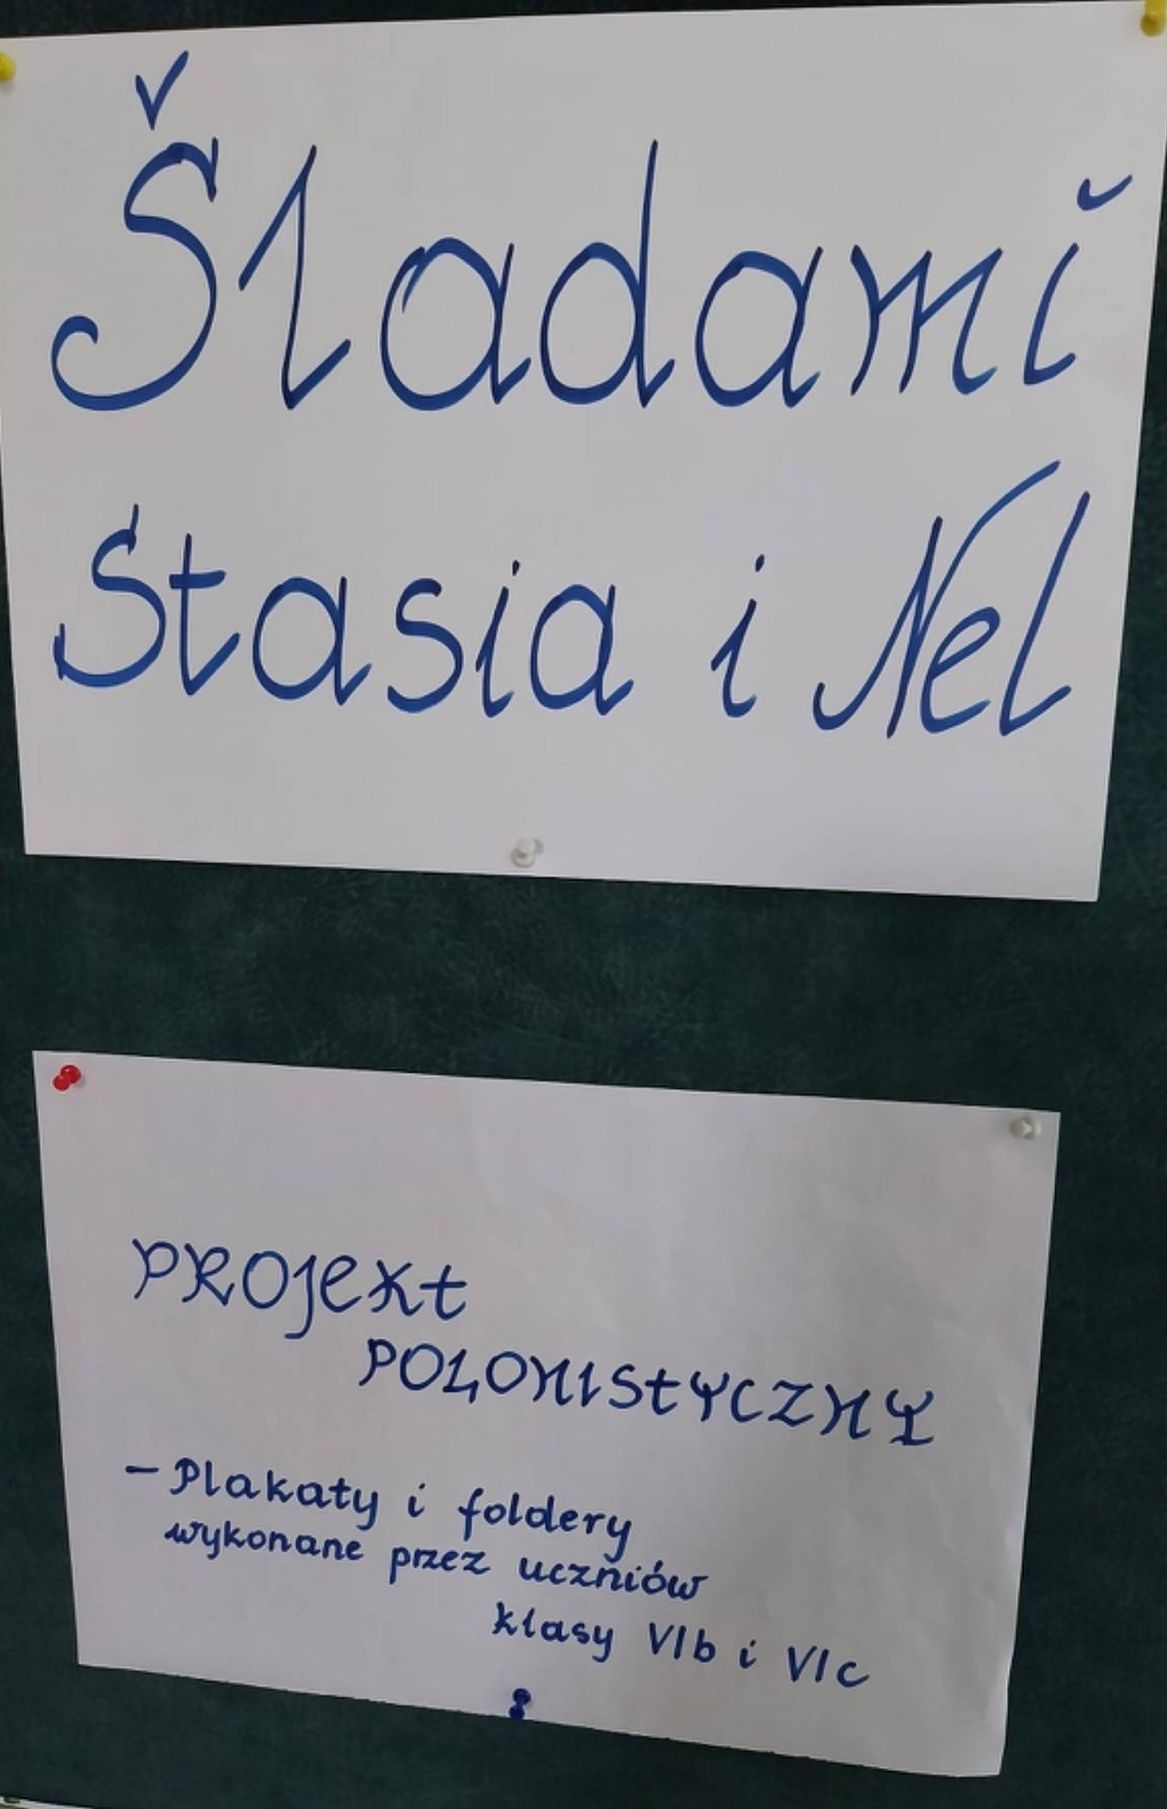 Śladami
Stasia i Nel
PROJEKT
POLONISTYCZNY
- Plakaty i foldery
wykonane przez uczniów
klasy VIb i VIc